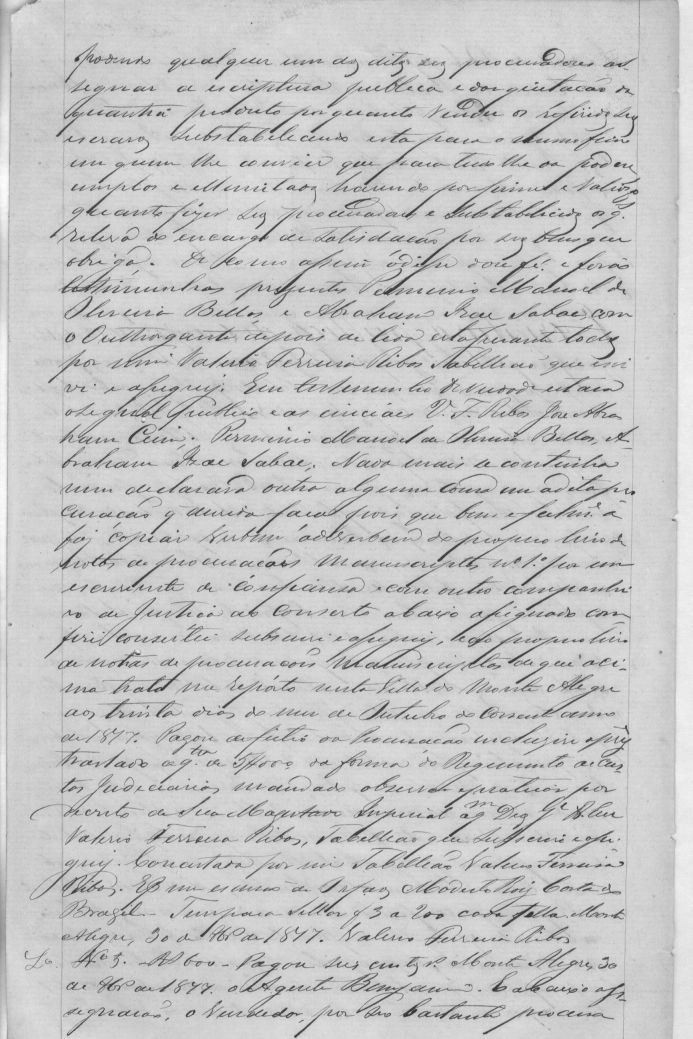 podendo qualquer um dos ditos seos procuradores as-
signar a escriptura publica e dar quitação da
quantia producto por quanto vender os referidos seos
escravos, substabelecendo esta para o mesmo fim
em quem lhe convier que para tudo lhe da poderes
amplos e illimitados havendo por firme e valioso
quanto fizer seos procuradores e substabelecidos os q.
releva do encargo de satisdação por seos bens que
obriga. E de como assim o disse dou fé, e forão
testimunhas presentes Perminio Manoel de
Oliveira Bellos e Abraham Izac Sabae, com
o Outhorgante depois de lida esta perante todos
por mim Valerio Ferreira Ribos Tabellião que escre-
vi e assignei. Em testemunho de verdade estava
o signal publico e as iniciaes V. F. Ribos José Abra-
ham Ceim. Perminio Manoel de Oliveira Bellos, A-
braham Izac Sabae. Nada mais se continha
nem declarava outra alguma cousa em a dita pro
curação q devida faça pois que bem e fielm.e a
fiz copiar verbum adverbum do proprio livro de
notas de procurações manuscriptas nº 1.º por um
escrevente de confiança e com outro companhei-
ro de Justiça ao conserto abaixo assignado con
feri consertei subscrevi e assignei, e ao proprio livro
de notas de procurações manuscriptas de que aci-
ma trata me reporto nesta Villa de Monte Alegre
aos trinta dias do mez de Outubro do corrente anno
de 1877. Pagou de feitio da Procuração inclusive o prez
trastado a q.tia de da forma do Regimento de Cus-
tas Judiciarias mandado observar e praticar por
decreto de Sua Magestade Imperial aq.m Deos G.e Eu
Valerio Ferreira Ribos, Tabellião que subscrevi e assi-
gnei. Concertada por mim Tabellião Valerio Ferreira
Ribos. E por mim escrivão de Orfãos Modesto Costa do
Brazil. Tem para Sellar f 3 a 200 cada folha. Monte
Alegre, 30 de 8br.º de 1877. Valerio Ferreira Ribos
Nº 5. Pagou seis centos rs. Monte Alegre, 30
de 8br.º de 1877. O Agente Benjamin. E abaixo as-
segnado, o Vendedor, por seo bastante procura